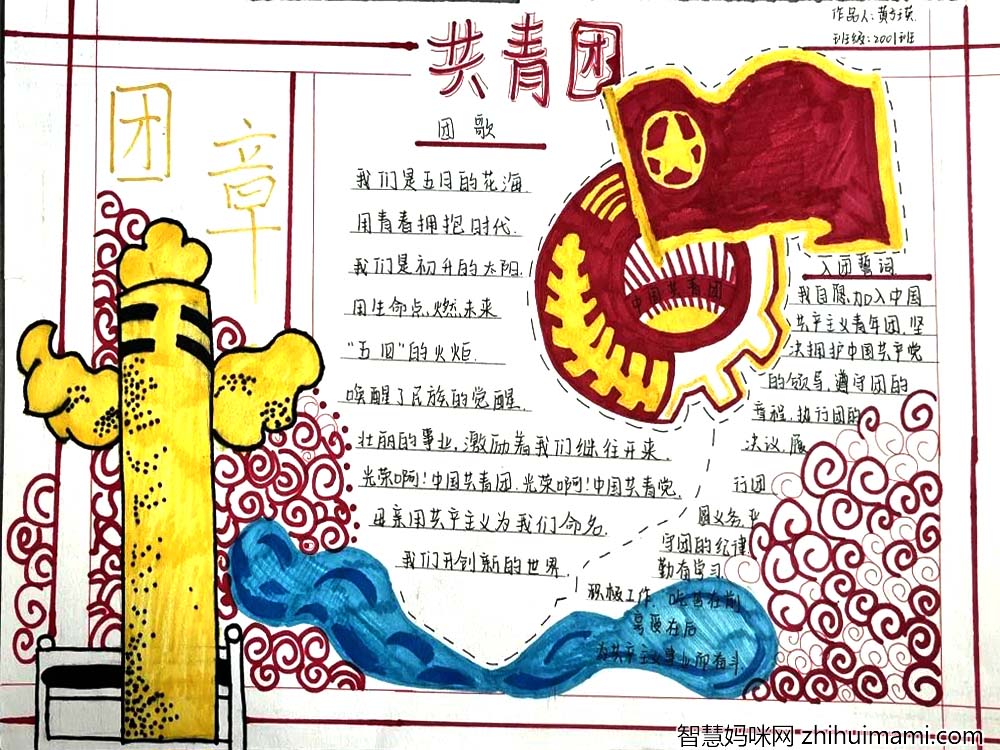 作品人:黄
班级:2001班
共青团
团章
团歌
我们是五月的花海
用青春拥抱时代.
我们是初升的太阳.
用生命点燃未来
“五四”的火炬.
唤醒了民族的觉醒.
壮丽的事业,激励着我们继往开来.
光荣啊!中国共青团.光荣啊!中国共青党.
母亲用共产主义为我们命名.
我们开创新的世界.
中国共青团
入团誓词
我自愿加入中国
共产主义青年团.坚
决拥护中国共产党
的领导.遵守团的
章程.执行团的
决议.履
行团
员义务.严
守团的纪律
勤奋学习.
积极工作.吃苦在前
享受在后
为共产主义事业而奋斗
智慧妈咪网 zhihuimami.com